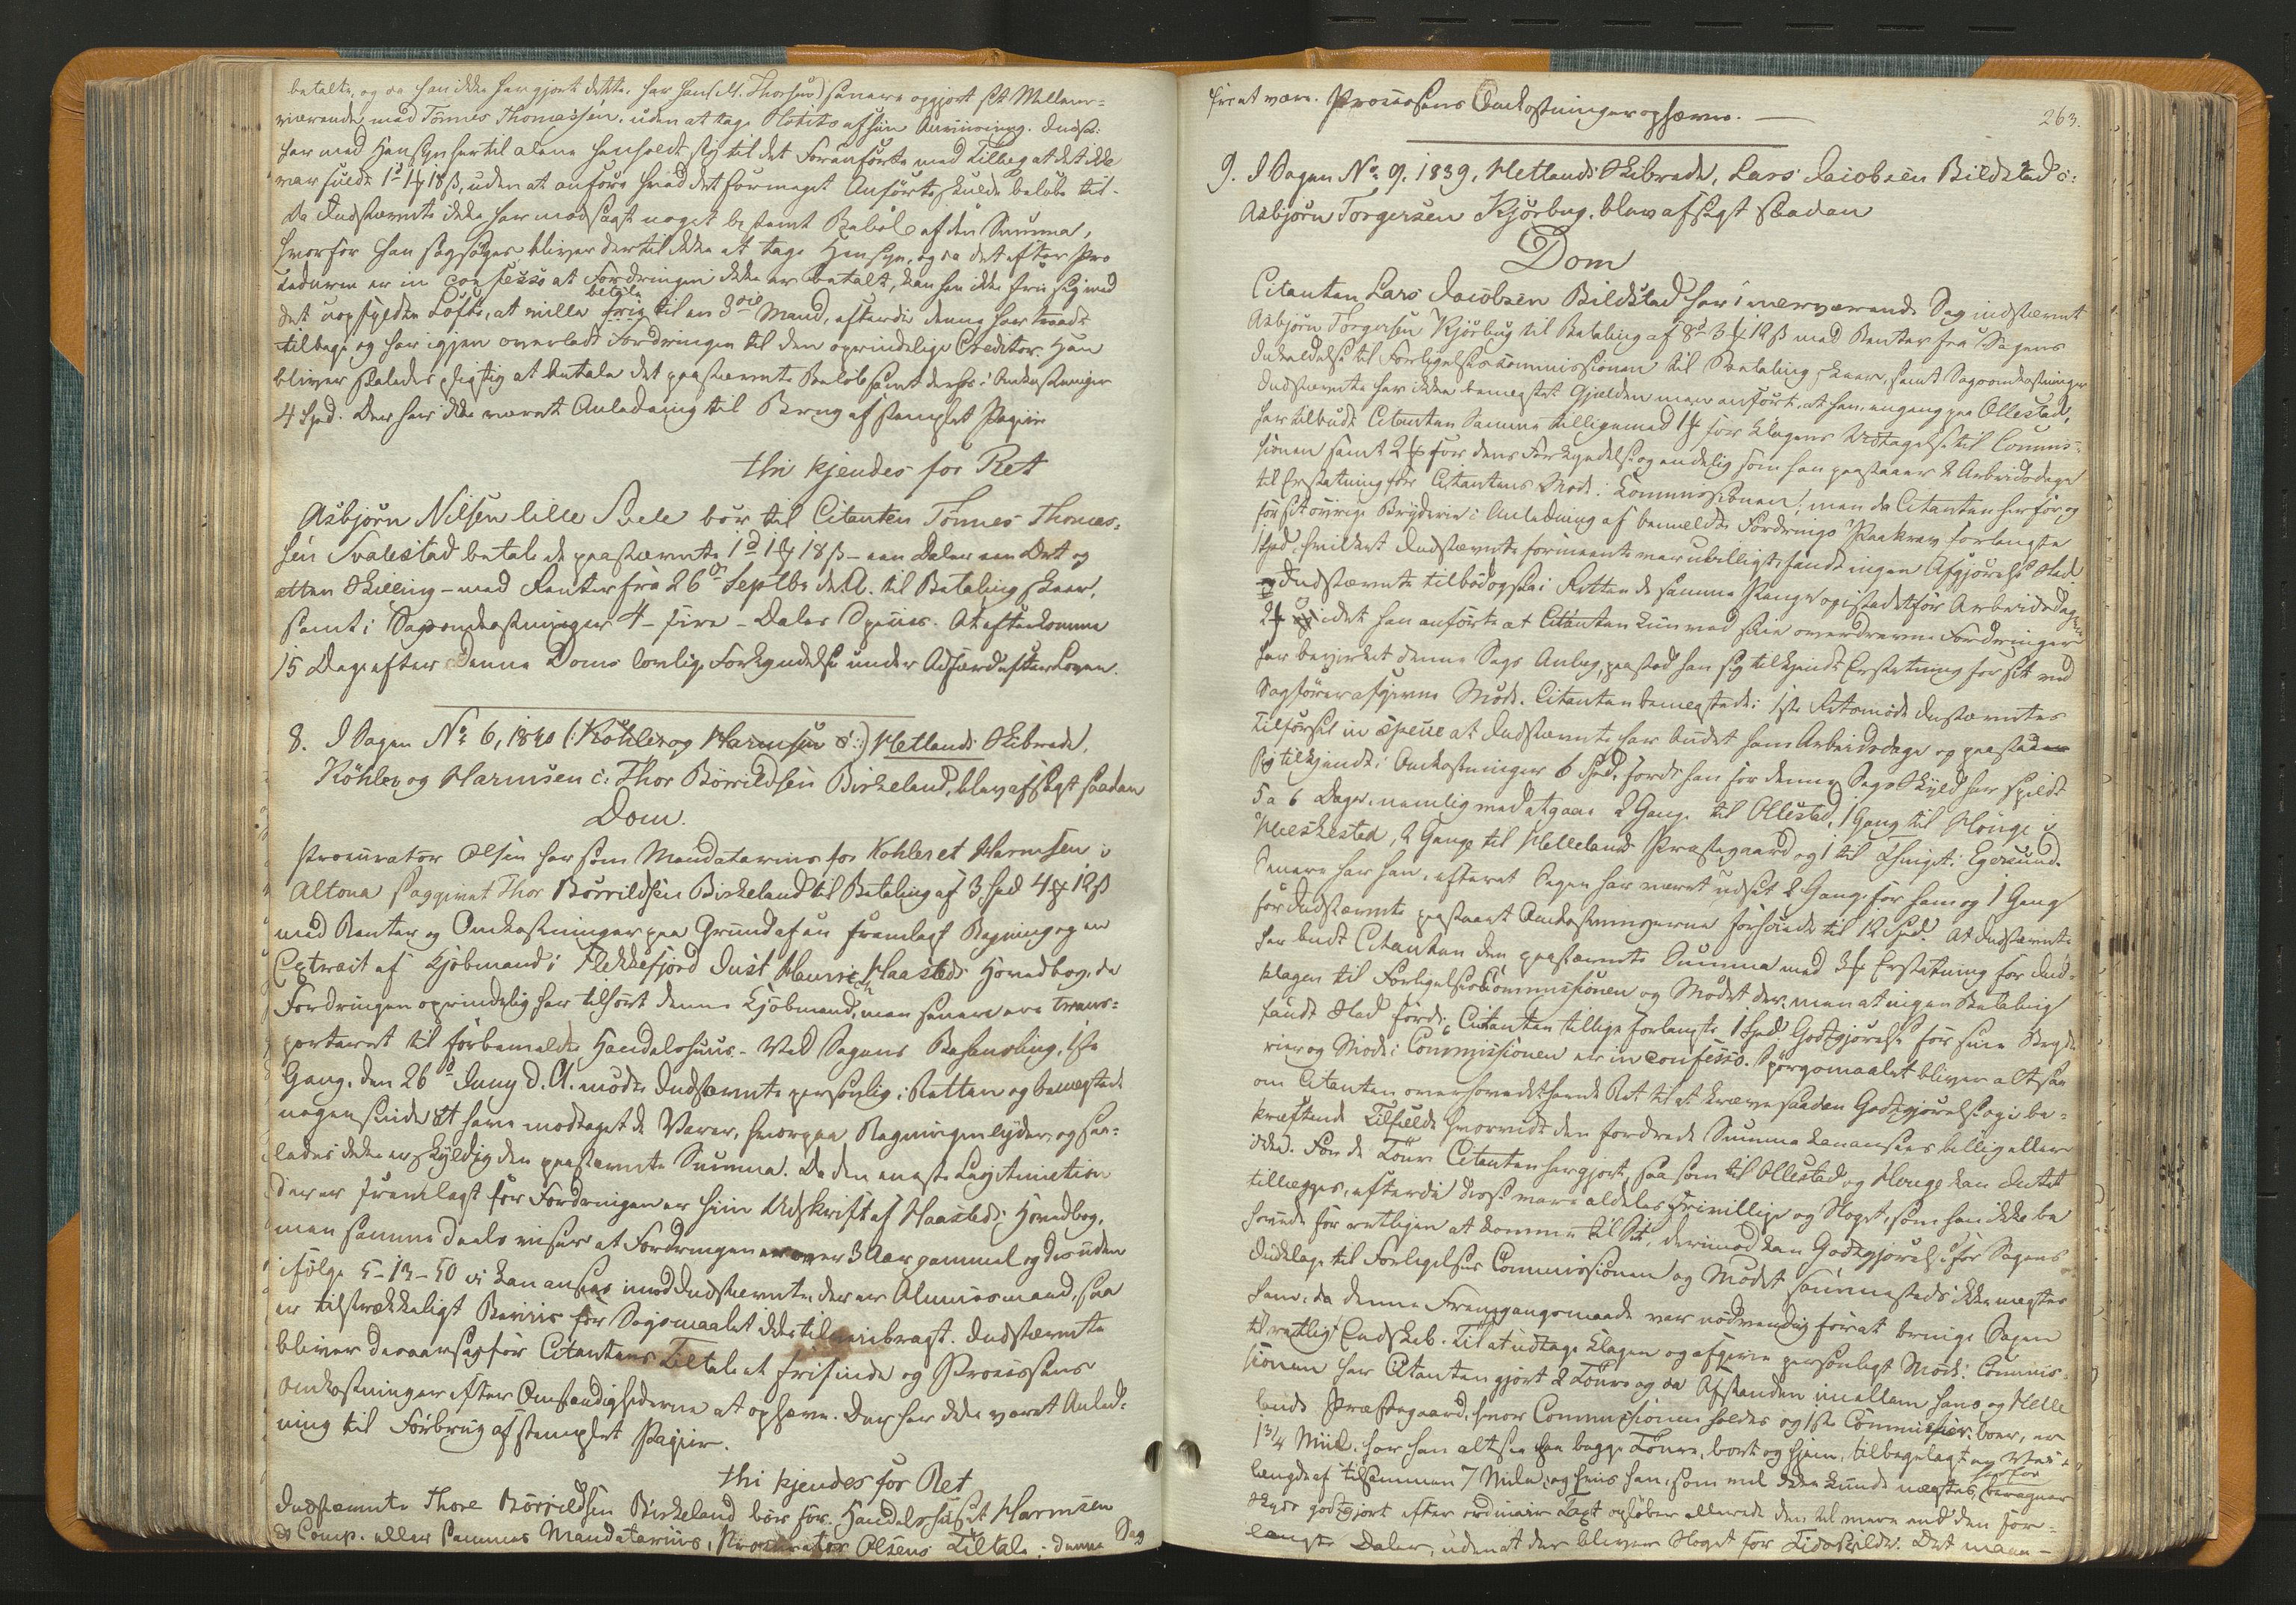 betalte, og da han ikke har gjort dette, har han (A. Thorsen) senere opgjort sit Mellem-
værende med Tönnes Thomassen, uden at tage Notits af hiin Anviisning. Indst:
har med Hensyn hertil alene henholdt sig til det Foranförte med Tillæg at det ikke
var fuldt 1d 1 ort 18 ß, uden at anföre hvad det formeget Anförte skulde belöbe til.
Da Indstævnte ikke har modsagt noget bestemt Belöb af den Summa,
hvorfor han sagsöges bliver dertil ikke at tage Hensyn, og da det efter Pro
ceduren er in confesso at Fordringen ikke er betalt, kan han ikke frie sig med
det uopfyldte Löfte, at ville betale til en 3die Mand, efterdi denne har traadt
tilbage og har igjen overladt Fordringen til den oprindelige Creditor. Han
bliver saaledes pligtig at betale det paastævnte Belöb samt desuden i Omkostninger
4 Spd. Der har ikke været Anledning til Brug af stemplet Papiir
thi kjendes for Ret
Asbjörn Nilsen lille Svele bör til Citanten Tönnes Thomas-
sen Svalestad betale de paastævnte 1d 1 ort 18 ß – een Daler een Ort og
atten Skilling – med Renter fra 26de Septbr d. A. til Betaling skeer,
samt i Sagsomkostninger 4 – fire – Daler Species. At efterkomme
15 Dage efter denne Doms lovlige Forkyndelse under Adfærd efter Loven.
8. I Sagen No 6, 1840 (: Köhler og Harmsen c :) Hetlands Skibrede,
Köhler og Harmsen c: Thor Börrildsen Birkeland, blev afsagt saadan
Dom.
Procurator Olsen har som Mandatarius for Kohler et Harmsen i
Altona saggivet Thor Börrildsen Birkeland til Betaling af 3 Spd 4 ort 12 ß
med Renter og Omkostninger paa Grund af en fremlagt Regning og en
Extract af Kjöbmand i Flekkefjord Just Henrich Haasteds Hovedbog, da
Fordringen oprindelig har tilhört denne Kjöbmand, men senere are trans-
porteret til förbemeldte Handelshuus. Ved Sagens Behandling, 1ste
Gang, den 26de Juny d. A. mödte Indstævnte personlig i Retten og benægtede
nogensinde at have modtaget de Varer, hvorpaa Regningen lyder, og saa-
ledes ikke er skyldig den paastævnte Summa. Da den eneste Legitimation
der er fremlagt for Fordringen er hiin Udskrift af Haasteds Hovedbog,
men samme deels viser at Fordringen er over 3 Aar gammel og desuden
ifölge 5–13–50 ei kan ansees imod Indstævnte, der er Almuesmand, saa
er tilstrækkeligt Beviis for Sagsmaalet ikke tilveiebragt. Indstævnte
bliver desaarsag for Citantens Tiltale at frifinde og Processens
Omkostninger efter Omstændighederne at ophæve. Der har ikke været Anled-
ning til Forbrug af stemplet Papiir.
thi kjendes for Ret
Indstævnte Thore Börrildsen Birkeland bör for Handelshuset Harmsen
& Comp. eller sammes Mandatarius, Procurator Olsens Tiltale i denne Sag
263.
frie at være. Processens Omkostninger ophæves. —
9. I Sagen No 9, 1839, Hetlands Skibrede, Lars Jacobsen Bildstad c:
Asbjörn Torgersen Kjörbug, blev afsagt saadan
Dom
Citanten Lars Jacobsen Bildstad har i nærværende Sag indstævnt
Asbjörn Torgersen Kjörbug til Betaling af 8d 3 ort 12 ß med Renter fra Sagens
Indkaldelse til Forligelsescommissionen til Betaling skeer, samt Sagsomkostninger
Indstævnte har ikke benægtet Gjælden men anfört, at han, engang paa Ollestad,
har tilbudt Citanten Samme tilligemed 1 ort for Klagens Udtagelse til Commis-
sionen samt 2 ort for dens Forkyndelse og endelig som han paastaaer 2 Arbeidsdage
til Erstatning for Citantens Möde i Kommissionen; men da Citanten herfor og
for sit övrige Bryderie i Anledning af bemeldte Fordrings Paakrav forlangte
1 Spd, hvilket Indstævnte formeente var ubilligt, fandt ingen Afgjörelse Sted
Indstævnte tilböd ogsaa i Retten de samme Penge og istedetfor Arbeidsdagene
2 ort og idet han anförte at Citanten kun ved sine overdrevne Fordringer
har bevirket denne Sags Anlæg, paastod han sig tilkjendt Erstatning for sit ved
Sagförer afgivne Möde. Citanten benægtede i 1ste Retsmöde Indstævntes
Tilförsel in specie at Indstævnte har budet ham Arbeidsdage og paastod
sig tilkjendt i Omkostninger 6 Spd, fordi han for denne Sags Skyld har spildt
5 a 6 Dage, nemlig ved at gaae 2 Gange til Ollestad, 1 Gang til Houge i
Hæskestad, 2 Gange til Hellelands Præstegaard og 1 til Thinget i Egersund.
Senere har han, efterat Sagen har været udsat 2 Gange for ham og 1 Gang
for Indstævnte paastaaet Omkostningerne forhöiede til 12 Spd. At Indstævnte
har budt Citanten den paastævnte Summa med 3 ort Erstatning for Ind-
klagen til Forligelsescommissionen og Mödet der, men at ingen Betaling
fandt Sted fordi Citanten tillige forlangte 1 Spd. Godtgjörelse for sine Bryde
rier og Möde i Commissionen er in confesso. Spörgsmaalet bliver altsaa
om Citanten overhovedet havde Ret til at kræve saadan Godtgjörelse og i be-
kræftende Tilfælde hvorvidt den fordrede Summa kan ansees billig eller
ikke. For de Toure Citanten har gjort, saasom til Ollestad og Houge kan Intet
tillægges, efterdi disse vare aldeles frivillige og Noget, som han ikke be
hövede for retligen at komme til Sit, derimod kan Godtgjörelse for Sagens
Indklage til Forligelses Commissionen og Mödet sammesteds ikke negtes
ham, da denne Fremgangsmaade var nödvendig for at bringe Sagen
til retligt Endskab. Til at udtage Klagen og afgive personligt Möde i Commis-
sionen har Citanten gjort 2 Toure og da Afstanden imellem hans og Helle
lands Præstegaard, hvor Commissionen holdes og 1ste Commissær boer, er
1 3/4 Miil, har han altsaa paa begge Toure, bort og hjem, tilbagelagt en Vei-
længde af tilsammen 7 Mile, og hvis han, som vel ikke kunde nægtes, herfor beregner
Skyds godtgjort efter ordinair Taxt oplöber allerede den til mere end den for-
langte Daler, uden at der bliver Noget for Tidsspilde. Det maae –